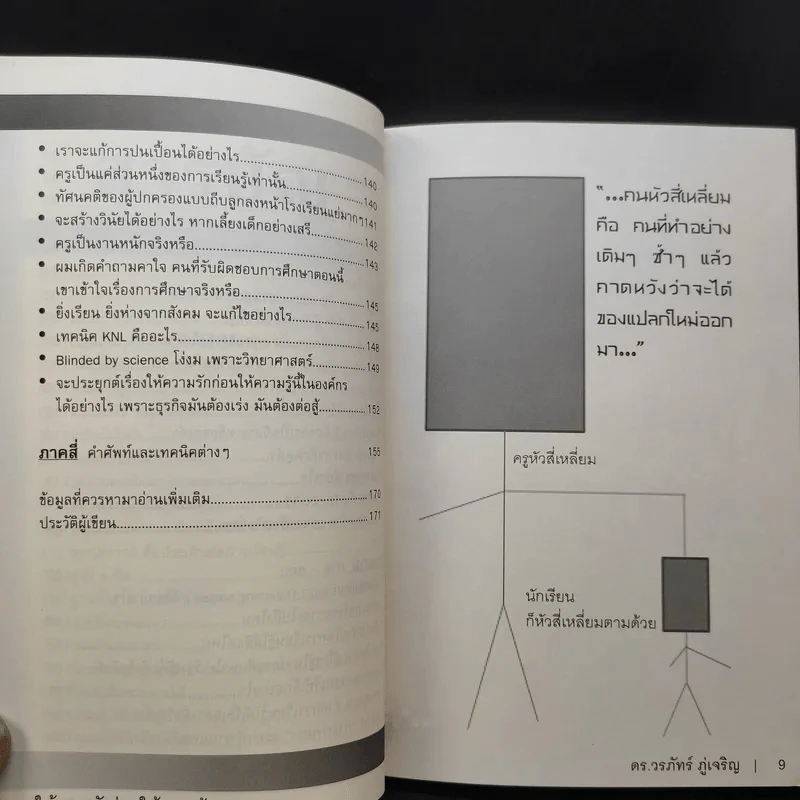 • เราจะแก้การปนเปื้อนได้อย่างไร..............................140
• ครูเป็นแค่ส่วนหนึ่งของการเรียนรู้เท่านั้น....................140
• ทัศนคติของผู้ปกครองแบบถีบลูกลงหน้าโรงเรียนแย่มากๆ 141
• จะสร้างวินัยได้อย่างไร หากเลี้ยงเด็กอย่างเสรี..............142
• ครูเป็นงานหนักจริงหรือ..............................143
• ผมเกิดคำถามคาใจ คนที่รับผิดชอบการศึกษาตอนนี้
เขาเข้าใจเรื่องการศึกษาจริงหรือ..............................145
• ยิ่งเรียน ยิ่งห่างจากสังคม จะแก้ไขอย่างไร....................145
• เทคนิค KNL คืออะไร..............................148
• Blinded by science โง่งม เพราะวิทยาศาสตร์..............149
• จะประยุกต์เรื่องให้ความรักก่อนให้ความรู้นี้ในองค์กร
ได้อย่างไร เพราะธุรกิจมันต้องเร่ง มันต้องต่อสู้..............152
ภาคสี่ คำศัพท์และเทคนิคต่างๆ 155
ข้อมูลที่ควรหามาอ่านเพิ่มเติม..............................170
ประวัติผู้เขียน..............................171
"...คนหัวสี่เหลี่ยม
คือ คนที่ทำอย่าง
เดิมๆ ซ้ำๆ แล้ว
คาดหวังว่าจะได้
ของแปลกใหม่ออก
มา..."
ครูหัวสี่เหลี่ยม
นักเรียน
ก็หัวสี่เหลี่ยมตามด้วย
ดร.วรภัทร์ ภู่เจริญ | 9